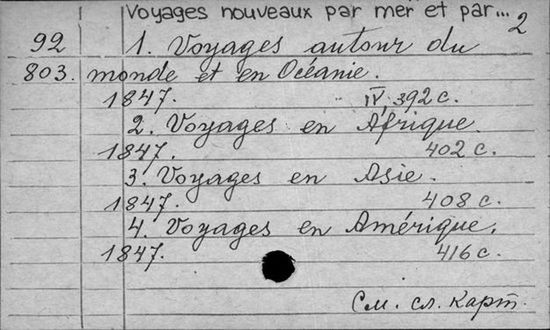 Voyages nouveaux par mer et par... 2
92 1. Voyages autour du
803. monde et en Océanie.
1847. IV, 392 с.
2. Voyages en Afrique.
1847. 402 с.
3. Voyages en Asie.
1847. 408 с.
4. Voyages en Amérique.
1847. 416 с.
См. сл. карт.